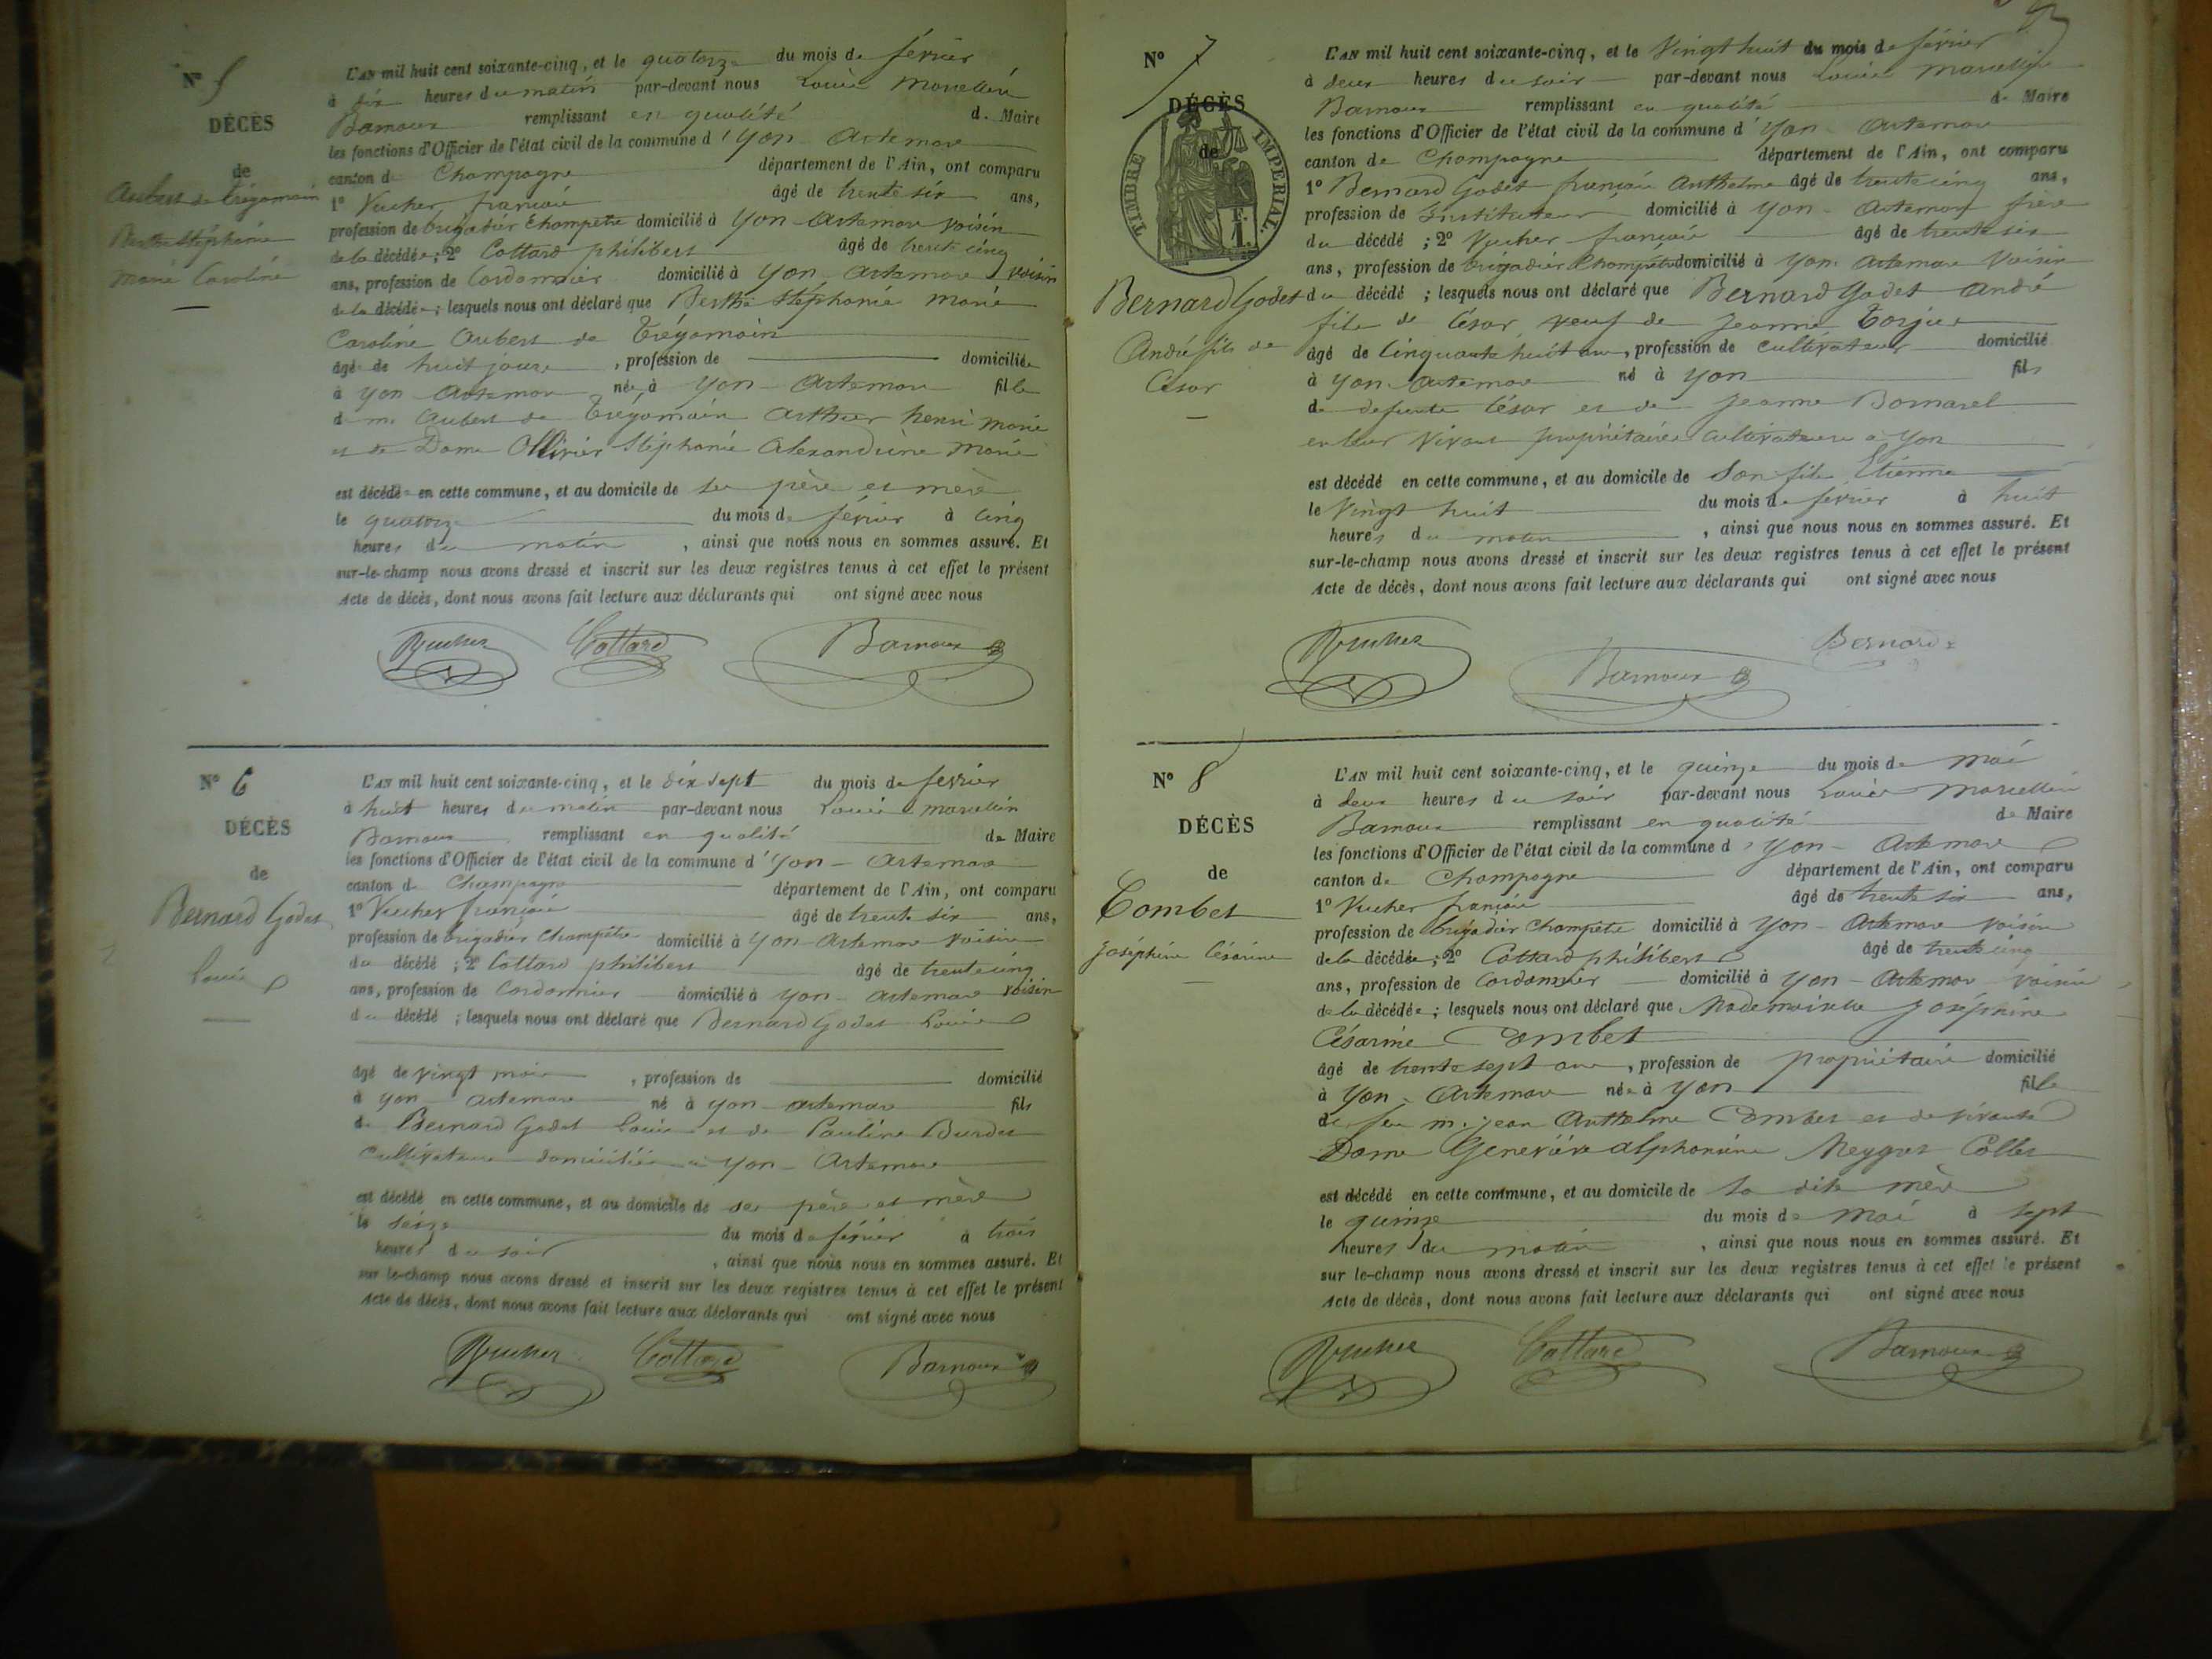 N° 5
DÉCÈS
de
Aubert de Trégomain
Berthe Stéphanie
Marie Caroline
L'AN mil huit cent soixante-cinq, et le quatorze du mois de février
à six heures du matin par-devant nous Louis Marcellin
Barnoux remplissant en qualité de Maire
les fonctions d'Officier de l'état civil de la commune d'Yon-Artemare
canton de Champagne département de l'Ain, ont comparu
1° Vucher françois âgé de trente six ans,
profession de brigadier Champêtre domicilié à Yon-Artemare voisin
de la décédée; 2° Cottard philibert âgé de trente cinq
ans, profession de Cordonnier domicilié à Yon-Artemare voisin
de la décédée; lesquels nous ont déclaré que Berthe Stéphanie Marie
Caroline Aubert de Trégomain
âgé de huit jours, profession de domiciliée
à Yon Artemare née à Yon-Artemare fille
de m. Aubert de Trégomain Arthur henri Marie
et de Dame Ollivier Stéphanie Alexandrine Marie
est décédée en cette commune, et au domicile de ses père et mère
le quatorze du mois de février à cinq
heures du matin, ainsi que nous nous en sommes assuré. Et
sur-le-champ nous avons dressé et inscrit sur les deux registres tenus à cet effet le présent
Acte de décès, dont nous avons fait lecture aux déclarants qui ont signé avec nous
Vucher Cottard Barnoux
N° 6
DÉCÈS
de
Bernard Godet
Louis
L'AN mil huit cent soixante-cinq, et le dix sept du mois de février
à huit heures du matin par-devant nous Louis Marcellin
Barnoux remplissant en qualité de Maire
les fonctions d'Officier de l'état civil de la commune d'Yon-Artemare
canton de Champagne département de l'Ain, ont comparu
1° Vucher françois âgé de trente six ans,
profession de brigadier Champêtre domicilié à Yon-Artemare voisin
du décédé; 2° Cottard philibert âgé de trente cinq
ans, profession de Cordonnier domicilié à Yon-Artemare voisin
du décédé; lesquels nous ont déclaré que Bernard Godet Louis
âgé de vingt mois, profession de domicilié
à Yon-Artemare né à Yon-Artemare fils
de Bernard Godet Louis et de Pauline Burdet
Cultivateurs domiciliés à Yon-Artemare
est décédé en cette commune, et au domicile de ses père et mère
le seize du mois de février à trois
heures du soir, ainsi que nous nous en sommes assuré. Et
sur le-champ nous avons dressé et inscrit sur les deux registres tenus à cet effet le présent
Acte de décès, dont nous avons fait lecture aux déclarants qui ont signé avec nous
Vucher Cottard Barnoux
N° 7
DÉCÈS
de
TIMBRE IMPÉRIAL
F.
1.
Bernard Godet
André fils de
César
L'AN mil huit cent soixante-cinq, et le Vingt huit du mois de février
à deux heures du soir par-devant nous Louis Marcellin
Barnoux remplissant en qualité de Maire
les fonctions d'Officier de l'état civil de la commune d'Yon-Artemare
canton de Champagne département de l'Ain, ont comparu
1° Bernard Godet françois Anthelme âgé de trente cinq ans,
profession de Instituteur domicilié à Yon-Artemare frère
du décédé; 2° Vucher françois âgé de trente six
ans, profession de brigadier Champêtre domicilié à Yon Artemare Voisin
du décédé; lesquels nous ont déclaré que Bernard Godet André
fils de César, veuf de Jeanne
âgé de Cinquante huit ans, profession de cultivateur domicilié
à Yon-Artemare né à Yon fils
de défunts César et de Jeanne Bomarel
en leur vivant propriétaires cultivateurs à Yon
est décédé en cette commune, et au domicile de Son fils Etienne
le Vingt huit du mois de février à huit
heures du matin, ainsi que nous nous en sommes assuré. Et
sur-le-champ nous avons dressé et inscrit sur les deux registres tenus à cet effet le présent
Acte de décès, dont nous avons fait lecture aux déclarants qui ont signé avec nous
Vucher Barnoux Bernard
N° 8
DÉCÈS
de
Combet
Joséphine Césarine
L'AN mil huit cent soixante-cinq, et le quinze du mois de Mai
à deux heures du soir par-devant nous Louis Marcellin
Barnoux remplissant en qualité de Maire
les fonctions d'Officier de l'état civil de la commune d'Yon-Artemare
canton de Champagne département de l'Ain, ont comparu
1° Vucher françois âgé de trente six ans,
profession de brigadier Champêtre domicilié à Yon-Artemare voisin
de la décédée; 2° Cottard philibert âgé de trente cinq
ans, profession de Cordonnier domicilié à Yon-Artemare voisin
de la décédée; lesquels nous ont déclaré que Mademoiselle Joséphine
Césarine Combet
âgé de trente sept ans, profession de propriétaire domicilié
à Yon-Artemare née à Yon fille
de feu m. jean Anthelme Combet et de vivante
Dame Geneviève alphonsine Meygret Collet
est décédé en cette commune, et au domicile de sa dite mère
le quinze du mois de Mai à sept
heures du matin, ainsi que nous nous en sommes assuré. Et
sur le-champ nous avons dressé et inscrit sur les deux registres tenus à cet effet le présent
Acte de décès, dont nous avons fait lecture aux déclarants qui ont signé avec nous
Vucher Cottard Barnoux